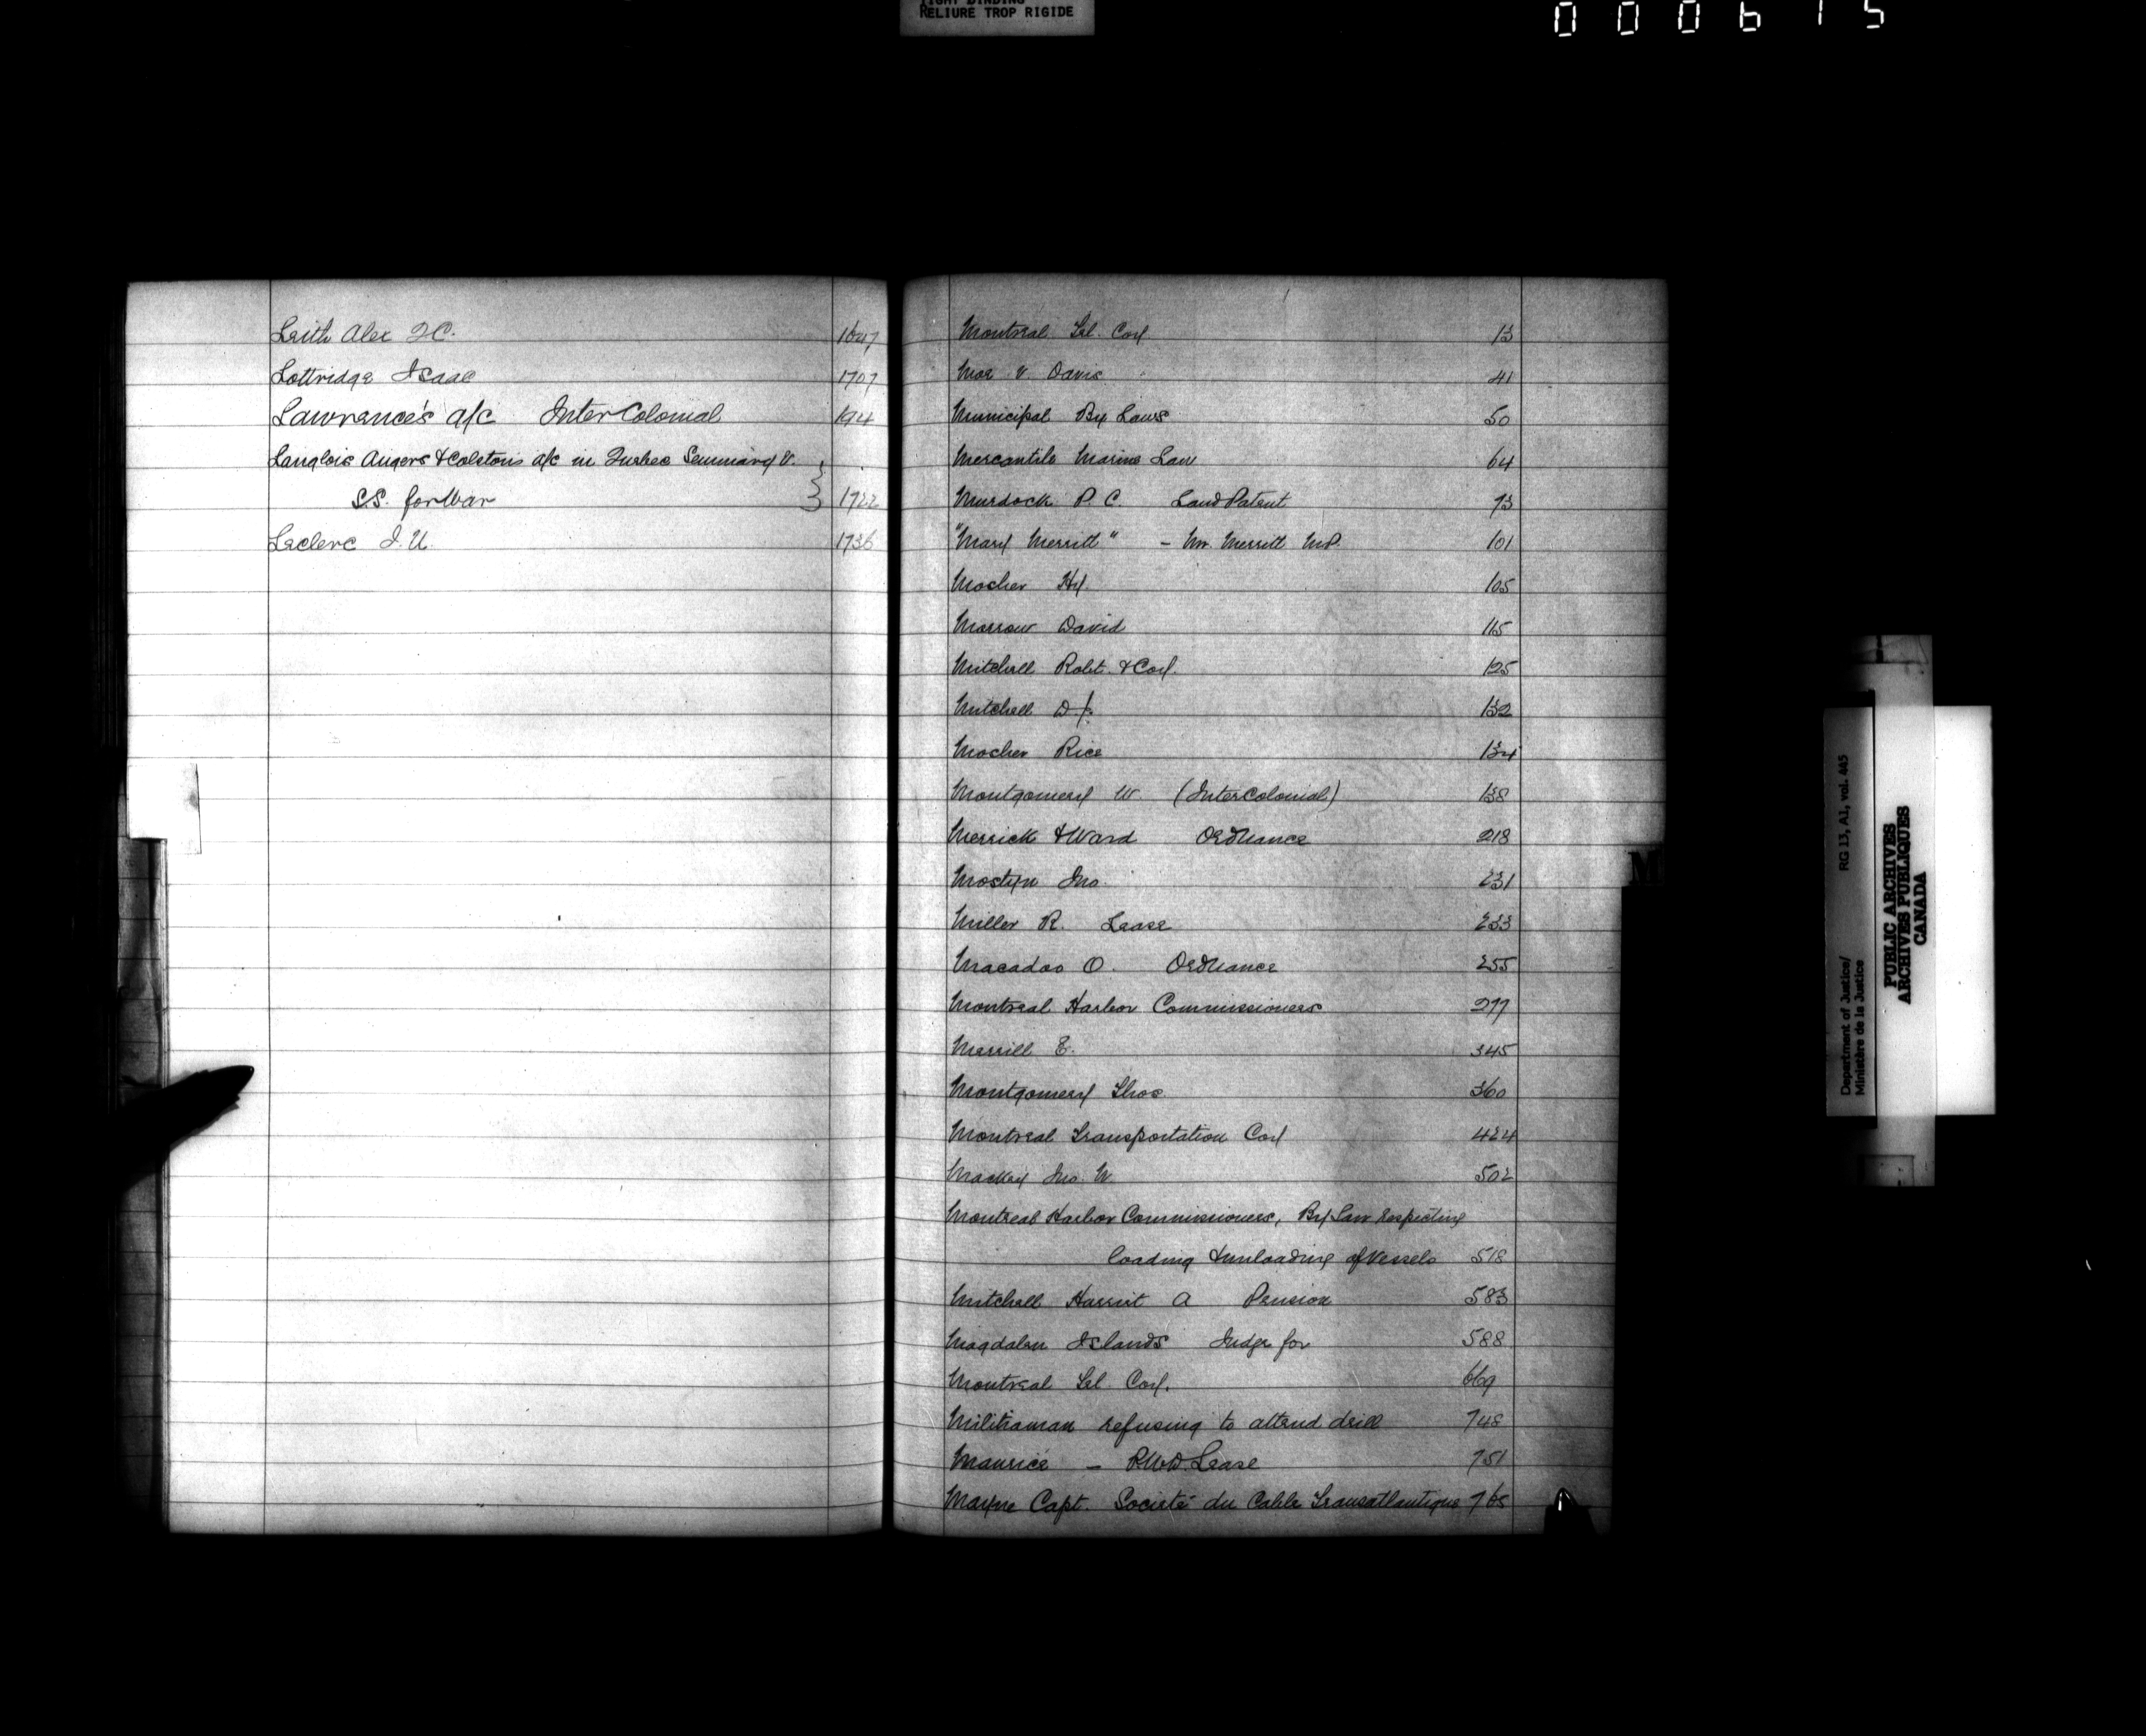 TIGHT BINDING
RELIURE TROP RIGIDE
000615
Leith Alex Q.C. 1647
Lottridge Isaac 1707
Lawrence's a/c InterColonial
Langlois Angers & Colston's a/c in Quebec Seminary v.
S.S. for War 1722
Leclerc J. U. 1736
Montreal Tel. Coy 13
Moe v. Davis 41
Municipal By Laws 50
Mercantile Marine Law 64
Murdock P. C. Land Patent 73
"Mary Merritt" - Mr. Merritt M.P. 101
Mosher Hy. 105
Morrow David 115
Mitchell Robt. & Coy. 125
Mitchell Do. 132
Mosher Rice 134
Montgomery W (InterColonial) 138
Merrick & Ward Ordnance 218
Mostyn Jno. 231
Miller R. Lease 233
Macadoo O. Ordnance 255
Montreal Harbor Commissioners 277
Merrill E. 345
Montgomery Thos 360
Montreal Transportation Coy 424
Mackay Jno. W. 502
Montreal Harbor Commissioners, By Law respecting
loading & unloading of Vessels 518
Mitchell Harriet A Pension 583
Magdalen Islands Judge for 588
Montreal Tel. Coy. 669
Militiaman refusing to attend drill 748
Maurice - P.W.D. Lease 751
Mayne Capt. Société du Cable Transatlantique 765
M
Department of Justice/
Ministère de la Justice
RG 13, A1, vol. 445
PUBLIC ARCHIVES
ARCHIVES PUBLIQUES
CANADA